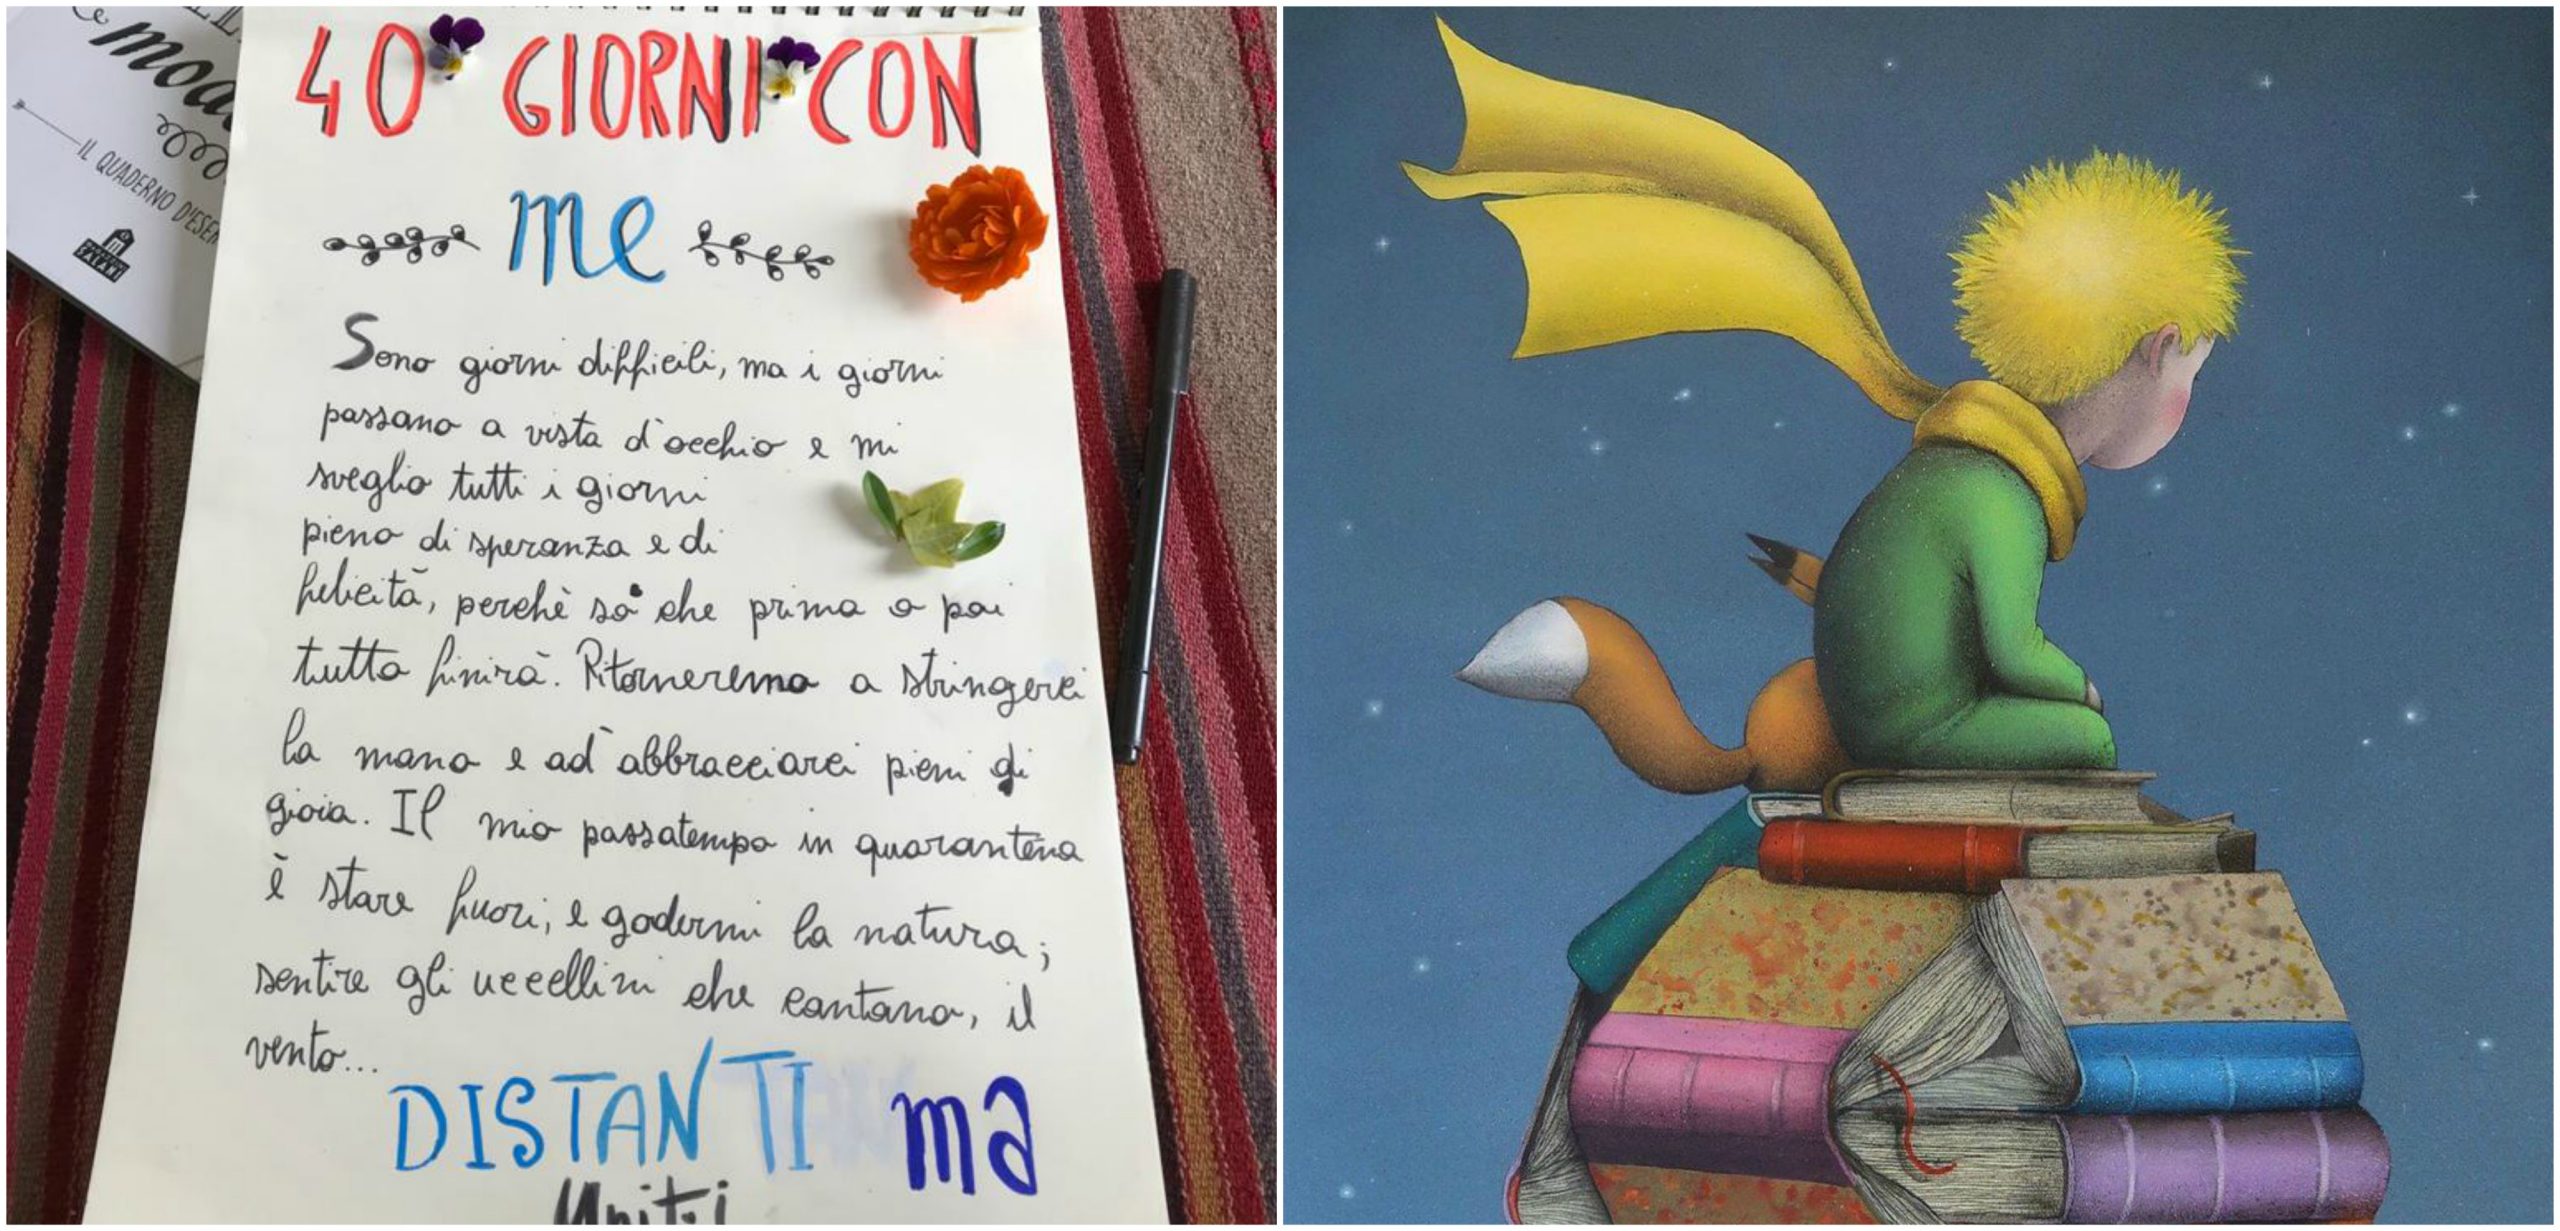 moda
IL QUADERNO D'ESER
SALANI
40 GIORNI CON
me
Sono giorni difficili, ma i giorni
passano a vista d'occhio e mi
sveglio tutti i giorni
pieno di speranza e di
felicità, perchè so che prima o poi
tutto finirà. Ritorneremo a stringerci
la mano e ad abbracciarci pieni di
gioia. Il mio passatempo in quarantena
è stare fuori, e godermi la natura;
sentire gli uccellini che cantano, il
vento...
DISTANTI ma
Uniti